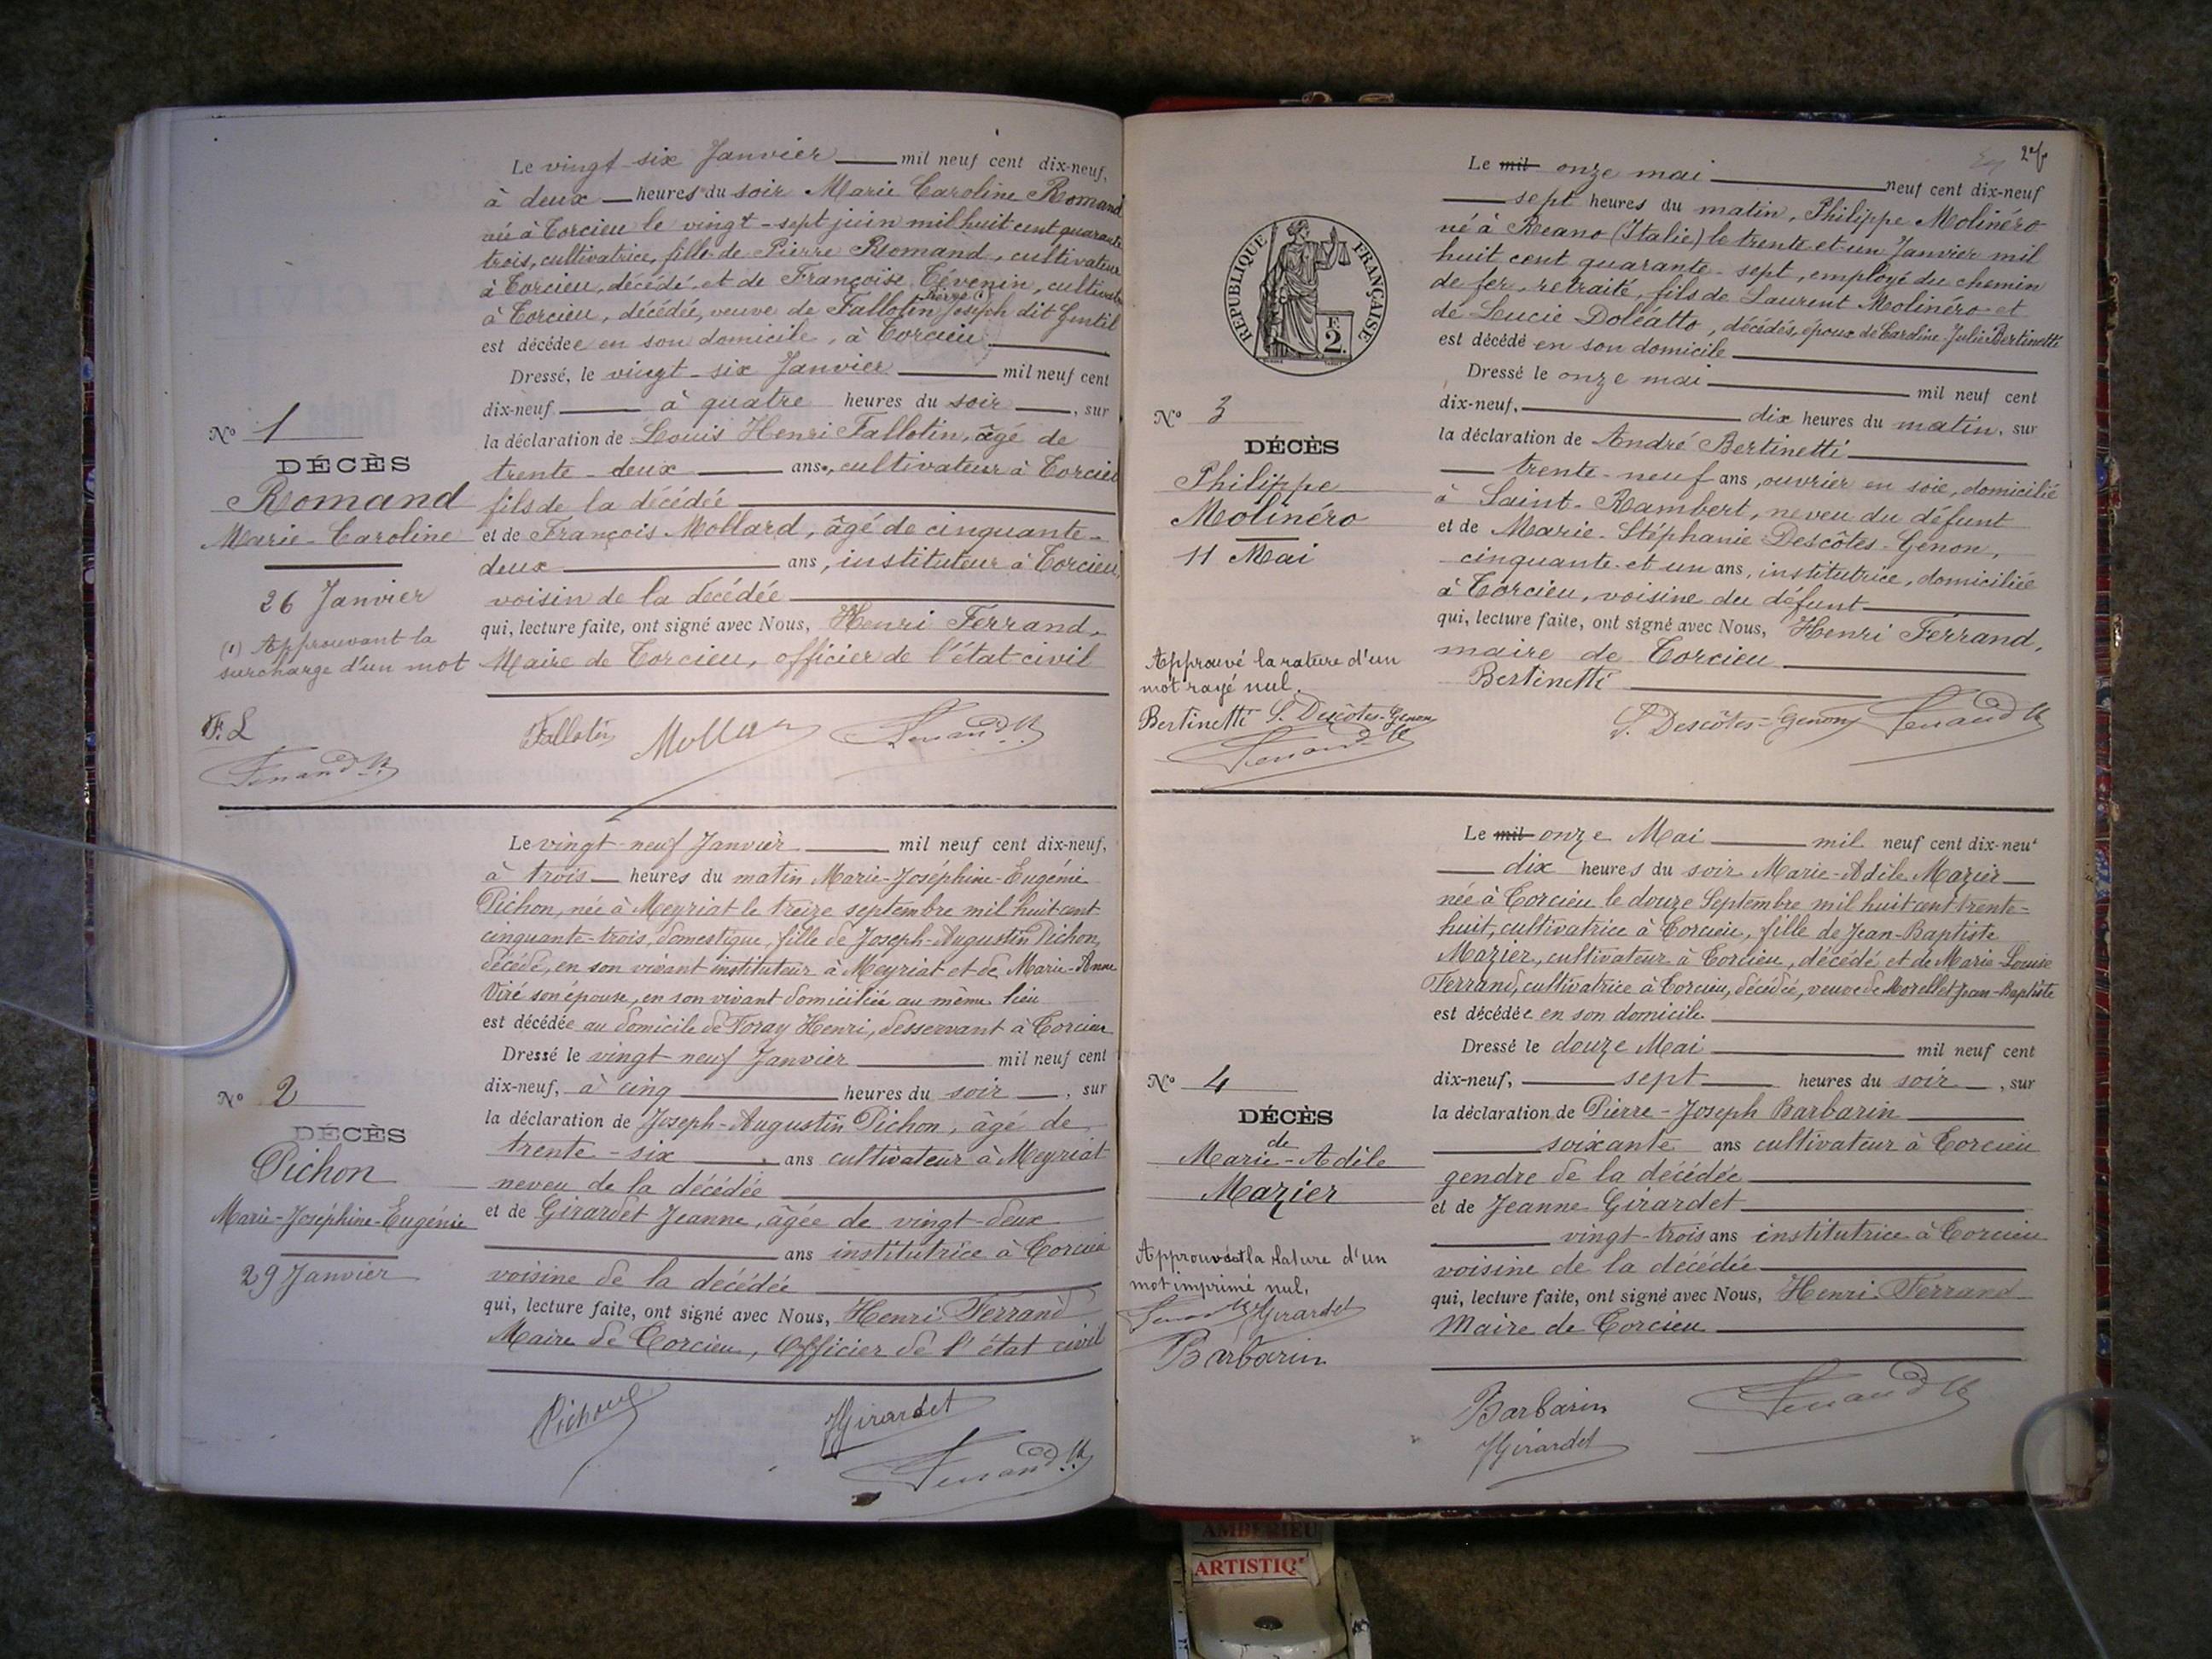 Le vingt-six Janvier mil neuf cent dix-neuf,
à deux heures du soir Marie Caroline Romand
née à Torcieu le vingt-sept juin mil huit cent quarante
trois, cultivatrice, fille de Pierre Romand, cultivateur
à Torcieu, décédé, et de Françoise Tévenin, cultivatrice
Pierre (1)
à Torcieu, décédée, veuve de Fallotin Joseph dit Gentil
est décédée en son domicile, à Torcieu
Dressé, le vingt-six Janvier mil neuf cent
dix-neuf à quatre heures du soir, sur
la déclaration de Louis Henri Fallotin, âgé de
trente-deux ans, cultivateur à Torcieu
fils de la décédée
et de François Mollard, âgé de cinquante-
deux ans, instituteur à Torcieu,
voisin de la décédée
qui, lecture faite, ont signé avec Nous, Henri Ferrand,
Maire de Torcieu, officier de l'état civil
N° 1
DÉCÈS
Romand
Marie-Caroline
26 Janvier
(1) Approuvant la
surcharge d'un mot
F. L
Ferrand H.
Fallotin Mollard Ferrand H.
Le vingt-neuf Janvier mil neuf cent dix-neuf,
à trois heures du matin Marie-Joséphine-Eugénie
Pichon, née à Meyriat le treize septembre mil huit cent
cinquante-trois, domestique, fille de Joseph-Augustin Pichon,
décédé, en son vivant instituteur à Meyriat et de Marie-Anne
Viré son épouse, en son vivant domiciliée au même lieu
est décédée au domicile de Foray Henri, desservant à Torcieu
Dressé le vingt-neuf Janvier mil neuf cent
dix-neuf, à cinq heures du soir, sur
la déclaration de Joseph-Augustin Pichon, âgé de
trente-six ans cultivateur à Meyriat
neveu de la décédée
et de Girardet Jeanne, âgée de vingt-deux
ans institutrice à Torcieu
voisine de la décédée
qui, lecture faite, ont signé avec Nous, Henri Ferrand
Maire de Torcieu, Officier de l'état civil
N° 2
DÉCÈS
Pichon
Marie-Joséphine-Eugénie
29 Janvier
Pichon JGirardet
Ferrand H.
2e f
Le mil onze mai neuf cent dix-neuf
sept heures du matin, Philippe Molinéro
né à Reano (Italie) le trente et un Janvier mil
huit cent quarante-sept, employé du chemin
de fer, retraité, fils de Laurent Molinéro et
de Lucie Doléatto, décédés, époux de Caroline Julie Bertinetti
est décédé en son domicile
Dressé le onze mai mil neuf cent
dix-neuf, dix heures du matin, sur
la déclaration de André Bertinetti
trente-neuf ans, ouvrier en soie, domicilié
à Saint-Rambert, neveu du défunt
et de Marie-Stéphanie Descôtes-Genon,
cinquante et un ans, institutrice, domiciliée
à Torcieu, voisine du défunt
qui, lecture faite, ont signé avec Nous, Henri Ferrand,
maire de Torcieu
Bertinetti
S. Descôtes-Genon Ferrand H
RÉPUBLIQUE FRANÇAISE
F.
2.
N° 3
DÉCÈS
Philippe
Molinéro
11 Mai
Approuvé la rature d'un
mot rayé nul.
Bertinetti S. Descôtes-Genon
Ferrand H
Le mil onze Mai mil neuf cent dix-neuf
dix heures du soir Marie-Adèle Mazier
née à Torcieu le douze Septembre mil huit cent trente-
huit, cultivatrice à Torcieu, fille de Jean-Baptiste
Mazier, cultivateur à Torcieu, décédé et de Marie-Louise
Ferrand, cultivatrice à Torcieu, décédée, veuve de Morellet Jean-Baptiste
est décédée en son domicile
Dressé le douze Mai mil neuf cent
dix-neuf, sept heures du soir, sur
la déclaration de Pierre-Joseph Barbarin
soixante ans cultivateur à Torcieu
gendre de la décédée
et de Jeanne Girardet
vingt-trois ans institutrice à Torcieu
voisine de la décédée
qui, lecture faite, ont signé avec Nous, Henri Ferrand
Maire de Torcieu
N° 4
DÉCÈS
de
Marie-Adèle
Mazier
la rature d'un
mot imprimé nul.
Ferrand H JGirardet
Barbarin
Barbarin Ferrand H
JGirardet
AMBERIEU
ARTISTIQ'